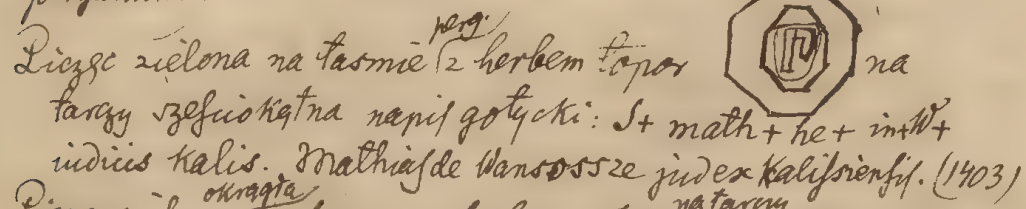 perg.
Pieczęc zielona na taśmie z herbem topor na
tarczy sześciokątna napis gotycki: S+ math + he + in+W+
iudicis Kalis. Mathias de Wansossze judex Kalissiensis. (1403)
okrągła
na tarczy